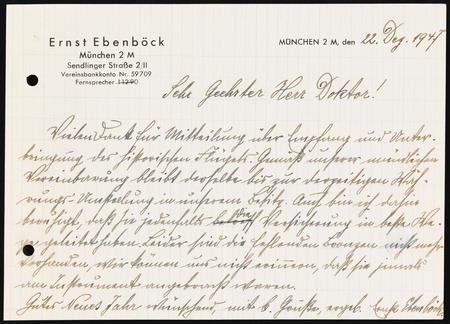 Ernst Ebenböck
München 2 M
Sendlinger Straße 2/II
Vereinsbankkonto Nr. 59709
Fernsprecher 11290
MÜNCHEN 2 M, den 22. Dez. 1947
Sehr Geehrter Herr Doktor!
Vielen Dank für Mitteilung über Empfang und Unter-
bringung des historischen Flügels. Gemäß unserer mündlichen
Vereinbarung bleibt derselbe bis zur derzeitigen Wäh-
rungs-Umstellung in unserem Besitz. Auch bin ich
beruhigt, daß Sie jedenfalls die Versicherung in beste We-
ge geleitet haben. Leider sind die fehlenden nicht mehr
vorhanden, wir können uns nicht erinnern, daß sie jemals
am Instrument angebracht waren.
Gutes Neues Jahr wünschend, mit b. Grüße, ergeb. Ernst Ebenböck